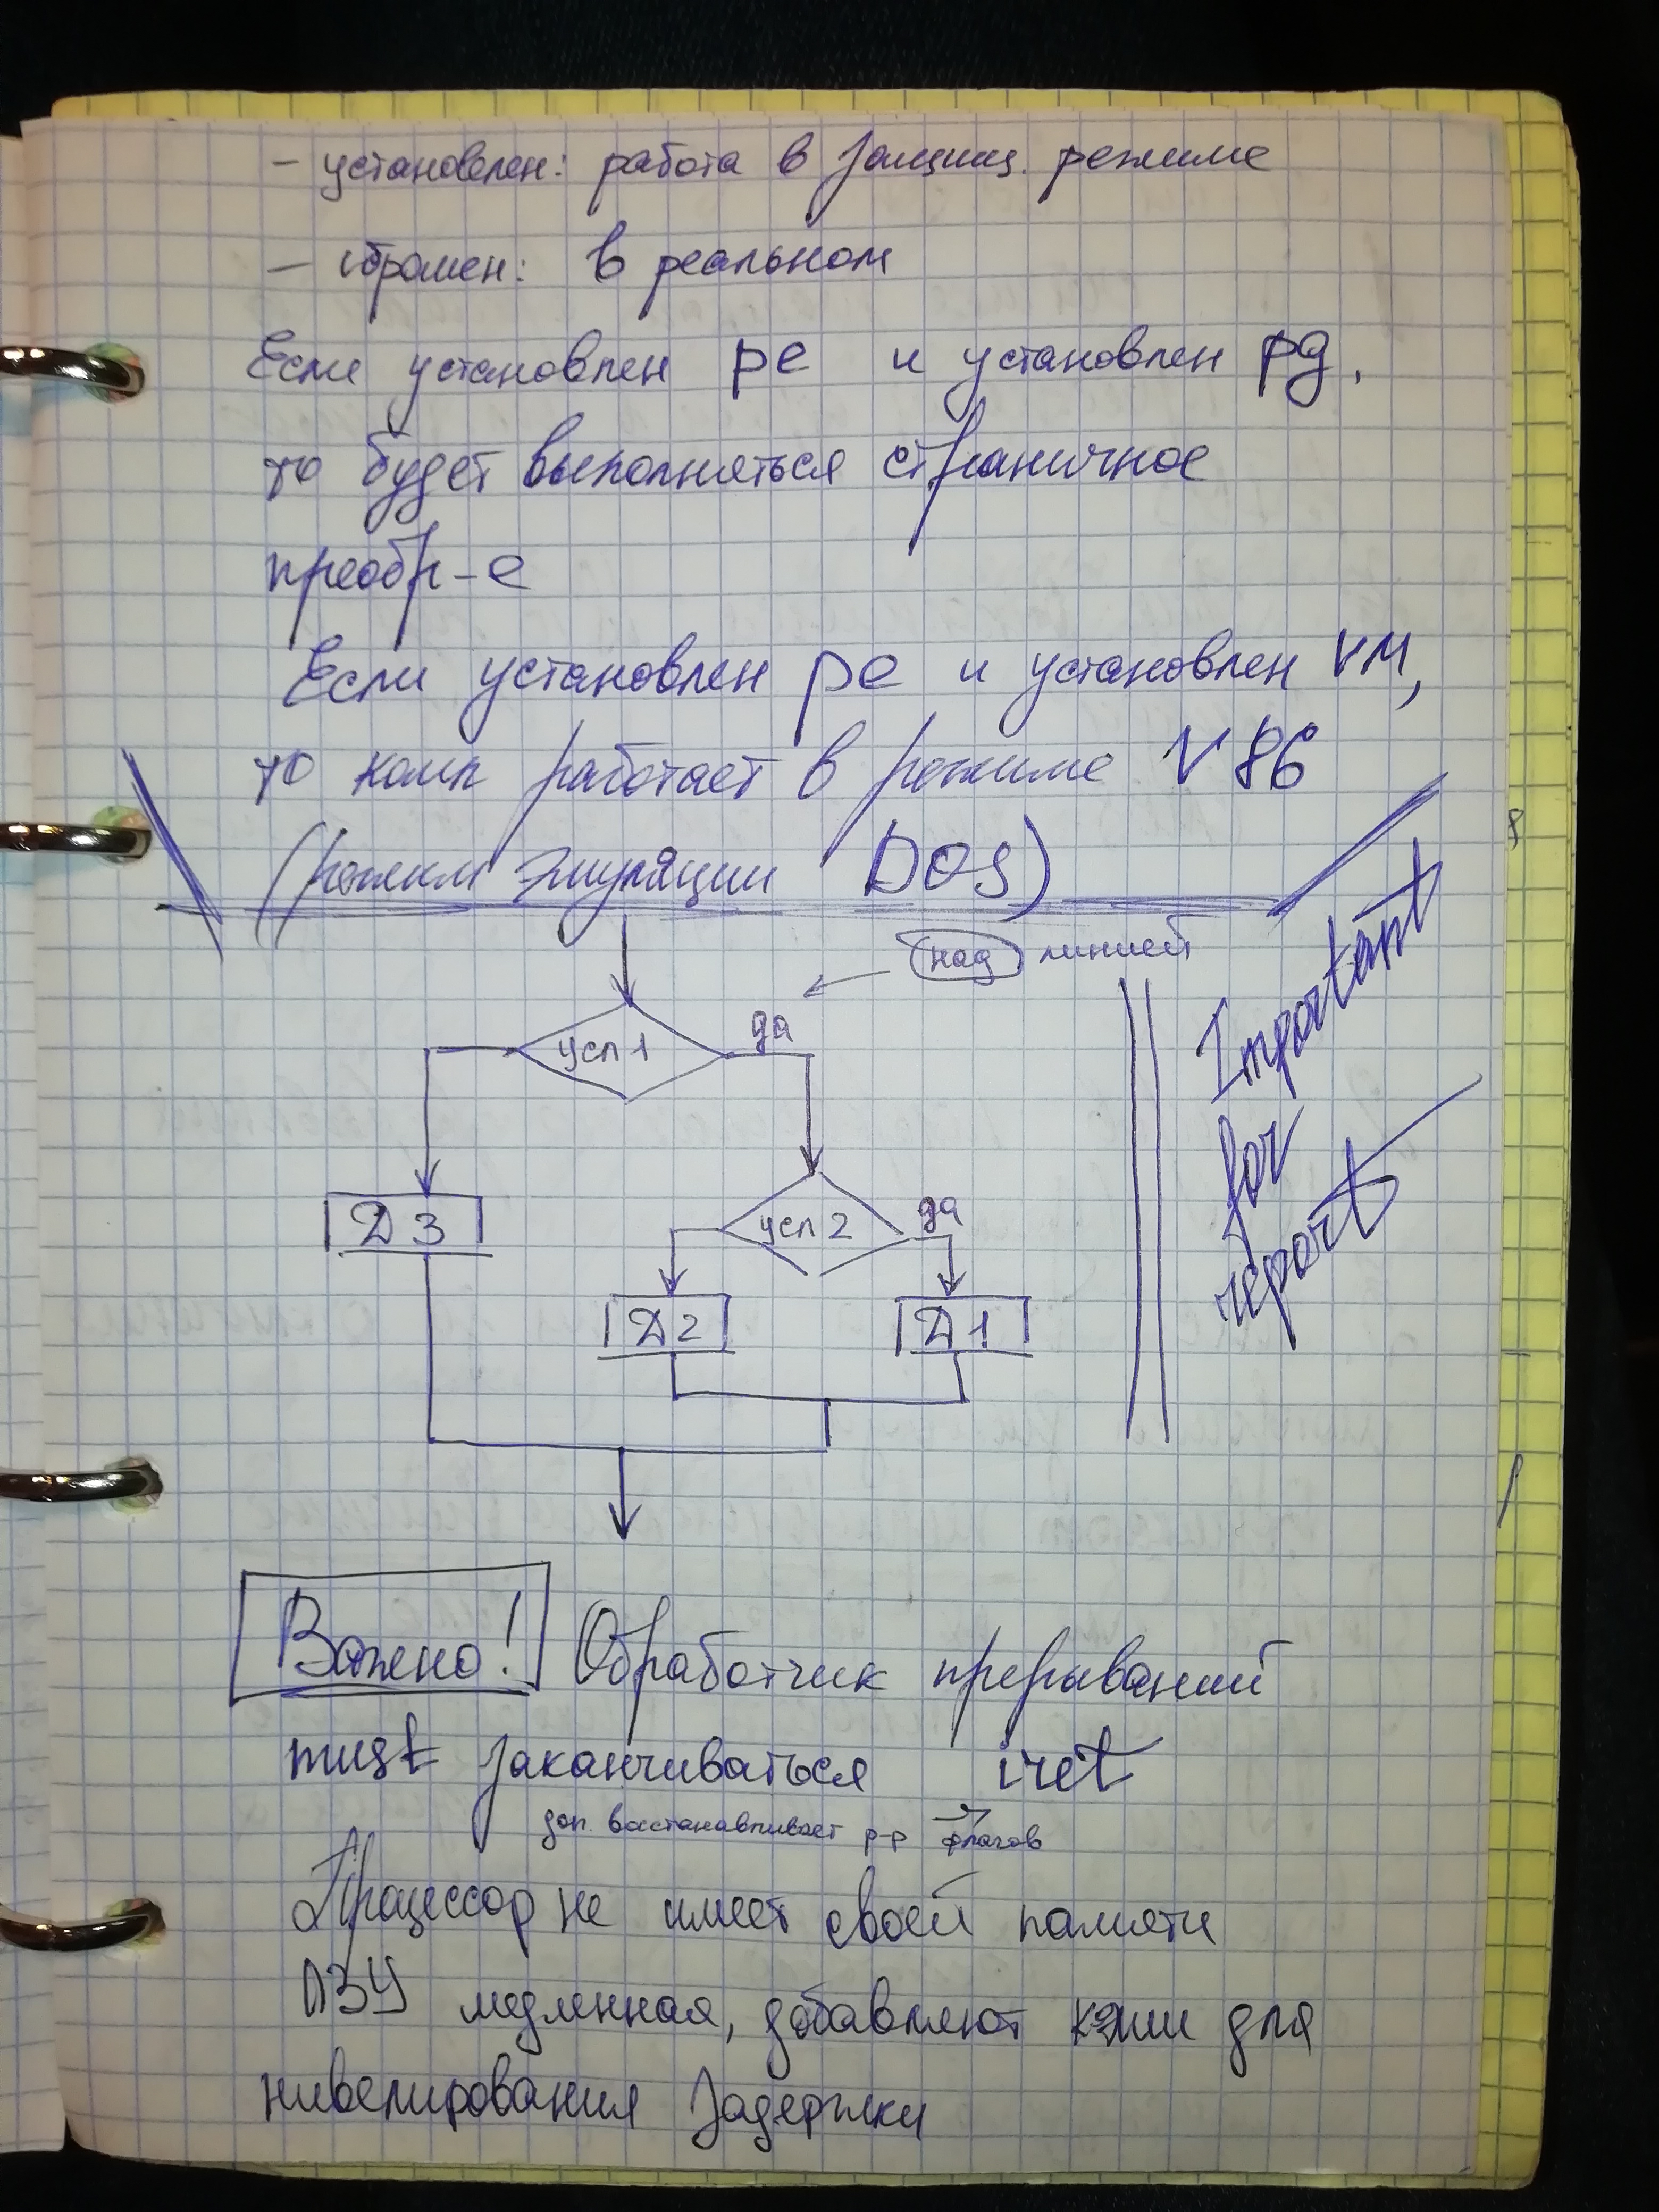 – установлен: работа в защищ. режиме
– сброшен: в реальном
Если установлен pe и установлен pg,
то будет выполняться страничное
преобр-е
Если установлен pe и установлен VM,
то комп работает в режиме V86
(режим эмуляции DOS)
над линией
усл 1
да
Important
for
report
Д 3
усл 2
да
Д 2
Д 1
Важно! Обработчик прерываний
must заканчиваться iret
доп. восстанавливает р-р флагов
Процессор не имеет своей памяти
ПЗУ медленная, добавляют кэши для
нивелирования задержки